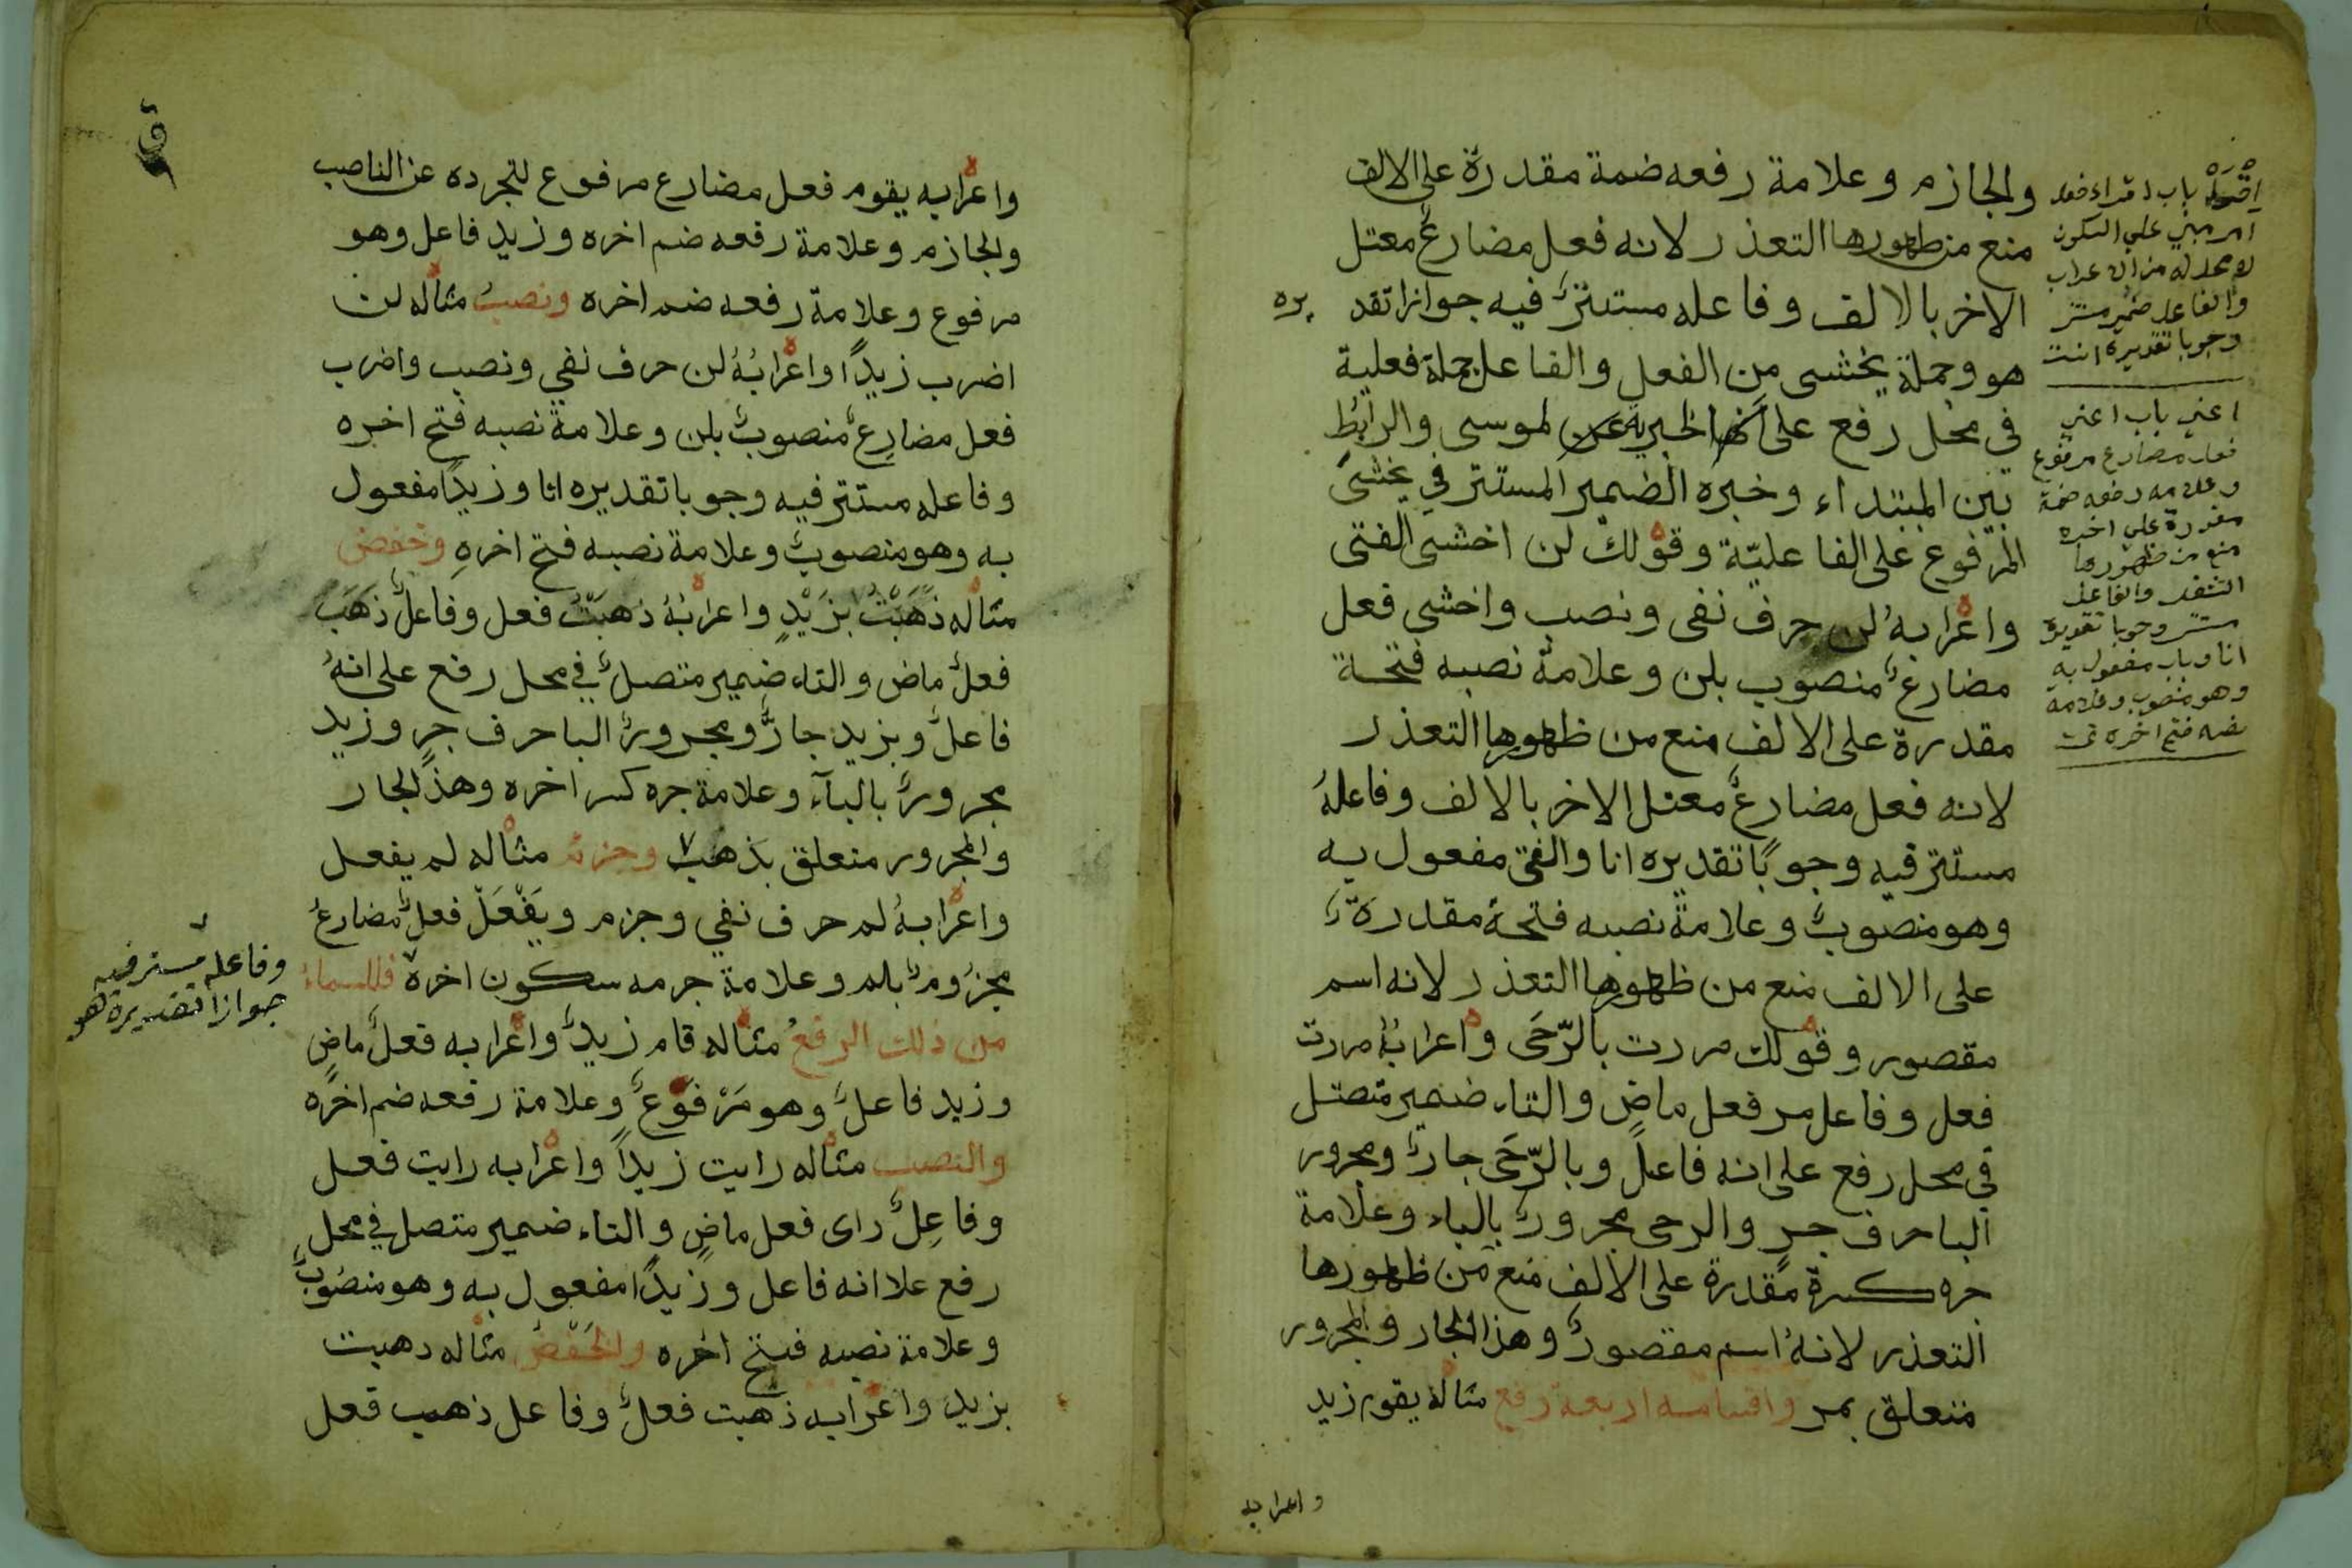 والجازم وعلامة رفعه ضمة مقدرة على الالف
منع من ظهورها التعذر لانه فعل مضارعٌ معتل
الاخر بالالف وفاعله مستترٌ فيه جوازا تقديره
هو وجملة يخشى من الفعل والفاعل جملة فعلية
في محل رفع على انها خبرية عن لموسى والرابُط
بين المبتداء وخبره الضمير المستتر في يخشى
المرفوع على الفاعليّة وقولك لن اخشى الفتى
واعرابهُ لن حرف نفى ونصب واخشى فعل
مضارعٌ منصوب بلن وعلامة نصبه فتحة
مقدرة على الالف منع من ظهورها التعذر
لانه فعل مضارعٌ معتل الاخر بالالف وفاعلهُ
مستتر فيه وجوبًا تقديره انا والفتى مفعول به
وهو منصوبٌ وعلامة نصبه فتحة مقدرةٌ
على الالف منع من ظهورها التعذر لانه اسم
مقصور وقولك مررت بالرّحَى واعرابهُ مررت
فعل وفاعل مر فعل ماضٍ والتاء ضمير متصل
في محل رفع على انه فاعل وبالرّحَى جارٌ ومجرور
البا حرف جرٍ والرحى مجرورٌ بالباء وعلامة
جره كسرة مقدرة على الالف منع من ظهورها
التعذر لانهُ اسم مقصورٌ وهذا الجار والمجرور
متعلق بمر واقسامه اربعة رفع مثاله يقوم زيد
واعرابه
باب اقراء فعل
امر مبني على السكون
لا محل له من الاعراب
والفاعل ضمير مستتر
وجوبا تقديره انت
اعني باب اعني
فعل مضارع مرفوع
وعلامة رفعه ضمة
مقدرة على اخره
منع من ظهورها
الثقل والفاعل
مستتر وجوبا تقديره
انا وباب مفعول به
وهو منصوب وعلامة
نصبه فتح اخره
واعرابه يقوم فعل مضارع مرفوع لتجرده عن الناصب
والجازم وعلامة رفعه ضم اخره وزيد فاعل وهو
مرفوع وعلامة رفعه ضم اخره ونصبُ مثاله لن
اضرب زيدًا واعرابُهُ لن حرف نفي ونصب واضرب
فعل مضارعٌ منصوبٌ بلن وعلامة نصبه فتح اخره
وفاعله مستتر فيه وجوبا تقديره انا وزيدًا مفعول
به وهو منصوبٌ وعلامة نصبه فتح اخرهِ وخفض
مثاله ذَهَبْتُ بزَيْدٍ واعرابُهُ ذهبْتُ فعل وفاعلٌ ذهَبَ
فعلٌ ماض والتاء ضمير متصلٌ في محل رفع على انهُ
فاعلٌ وبزيد جارٌّ ومجرورٌ البا حرف جرٍ وزيد
مجرورٌ بالبآء وعلامة جره كسر اخره وهذا الجار
والمجرور متعلق بذهب وجزم مثاله لم يفعل
واعرابهُ لم حرف نفي وجزم ويَفْعَلْ فعلٌ مضارعٌ
مجزُومٌ بلم وعلامة جزمه سكون اخره فللاسماء
من ذلك الرفعُ مثاله قام زيدٌ واعرابه فعلٌ ماضٍ
وزيد فاعلٌ وهو مَرْفوعٌ وعلامة رفعه ضم اخره
والنصب مثاله رايت زيداً واعرابه رايت فعل
وفاعِلٌ راى فعل ماضٍ والتاء ضمير متصل في محل
رفع علا انه فاعل وزيدًا مفعول به وهو منصُوبٌ
وعلامة نصبه فتح اخره والخفض مثاله دهبت
بزيد واعرابه ذهبت فعلٌ وفاعل ذهب فعل
وفاعله مستتر فيه
جوازا تقديره هو